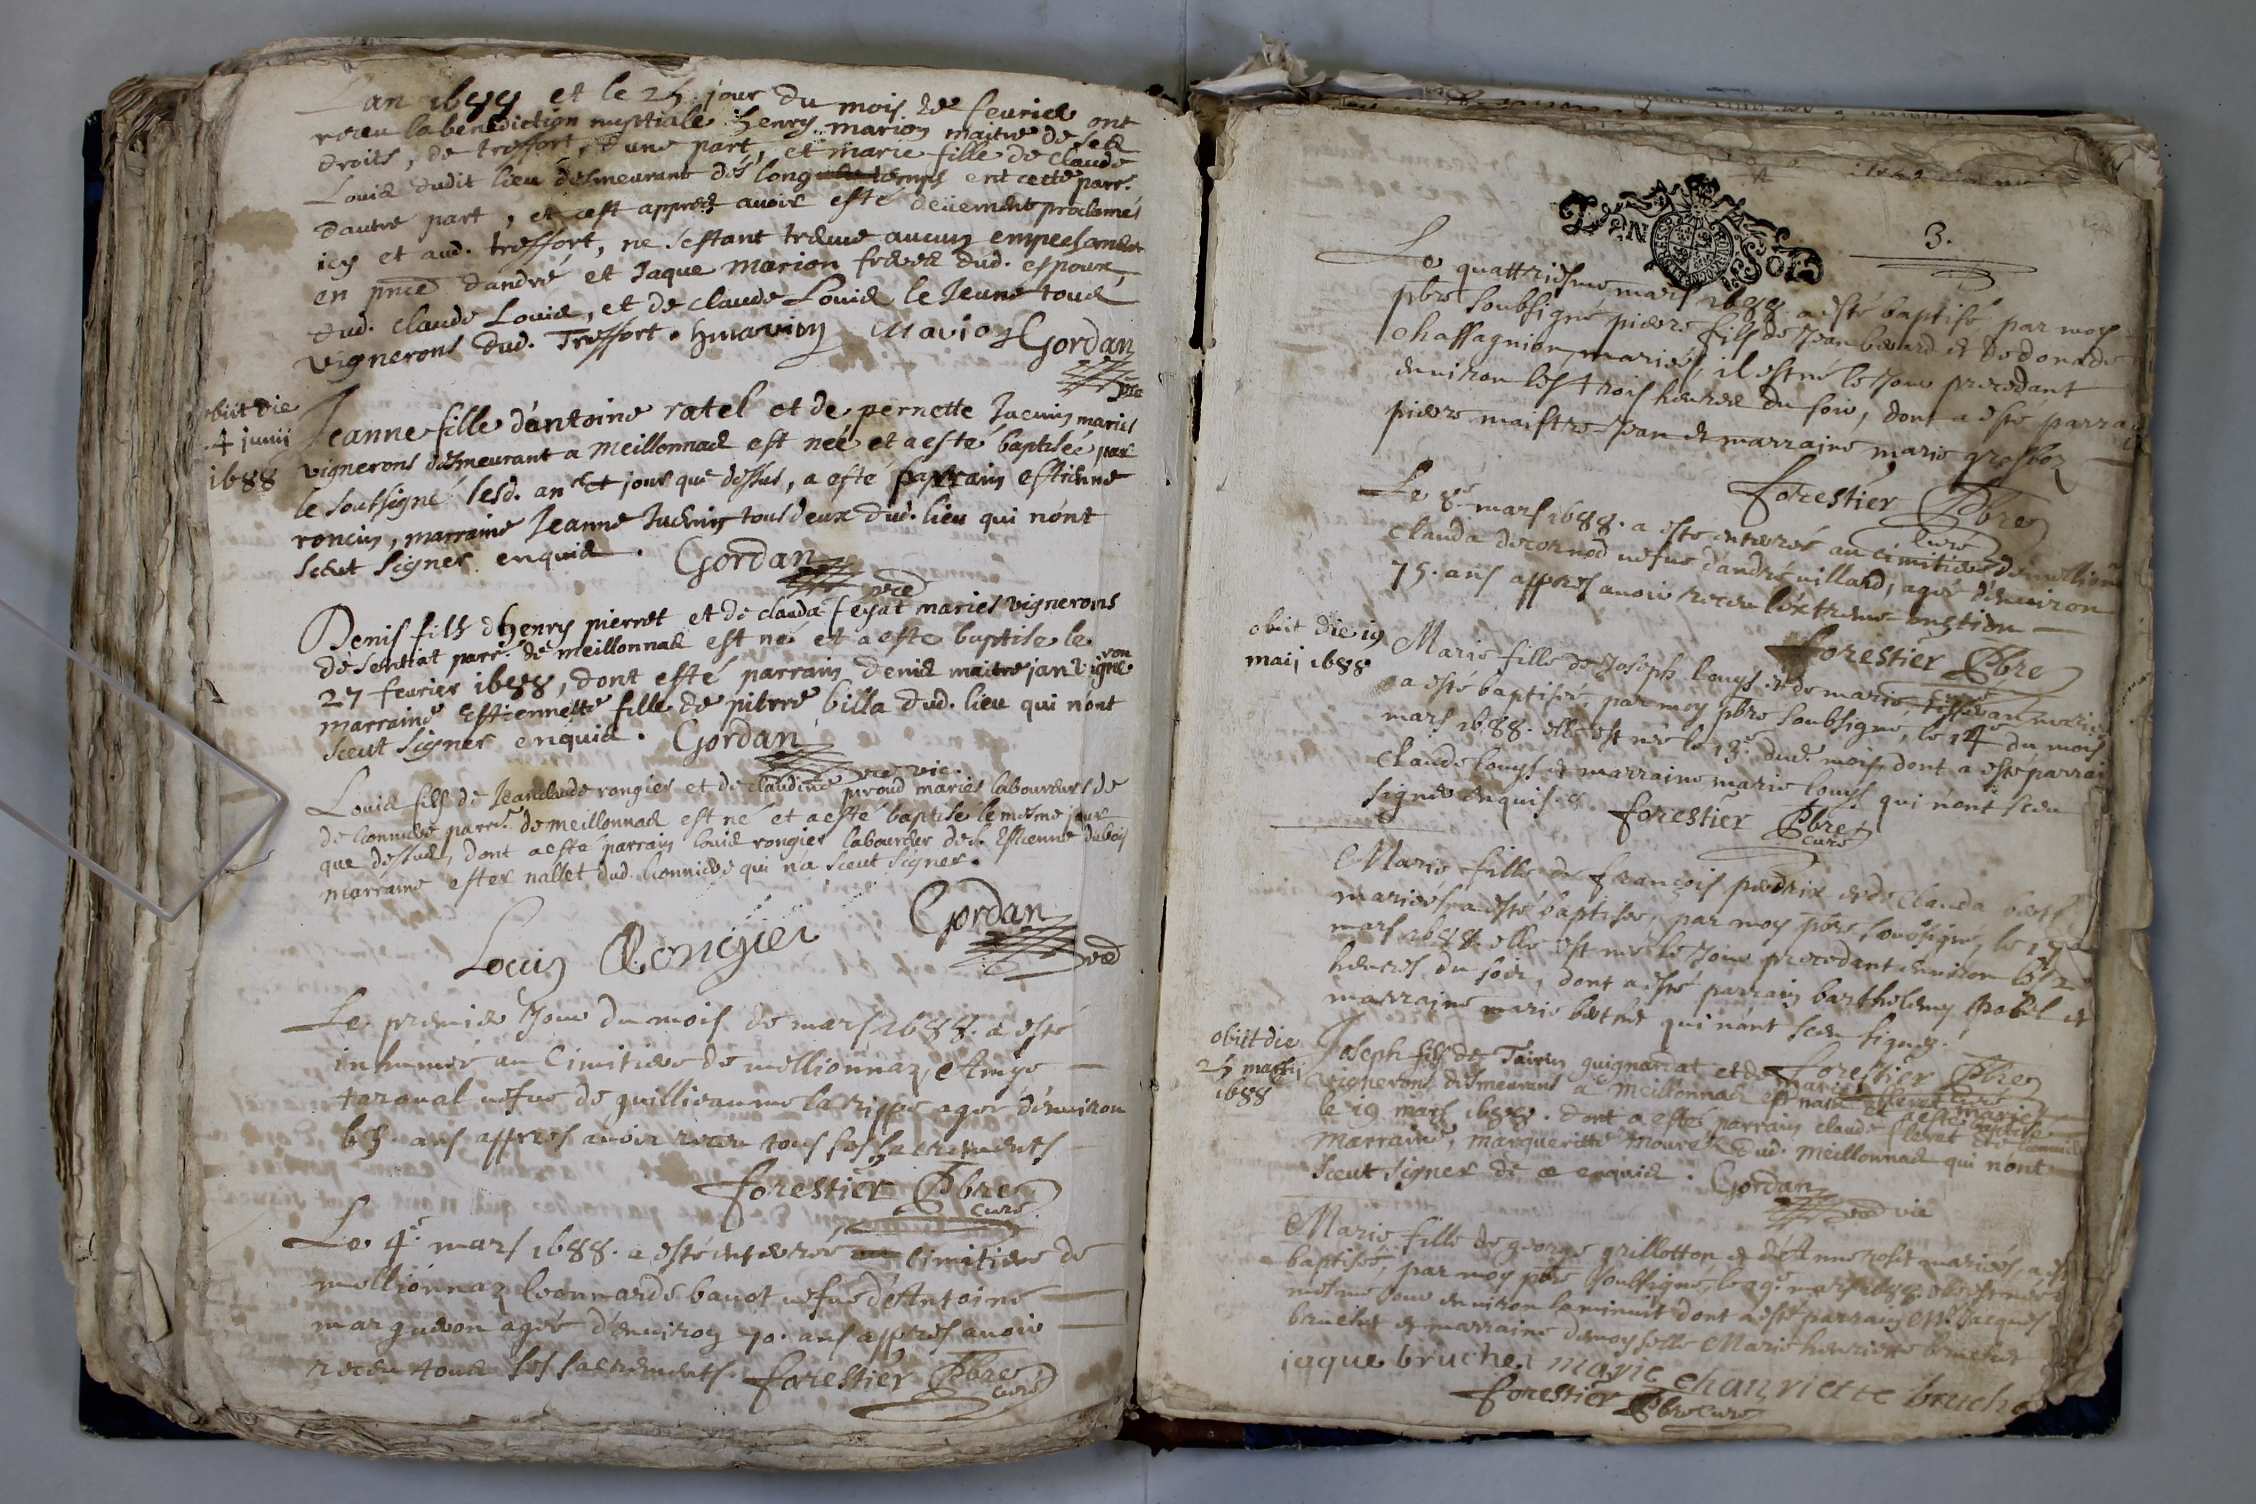 Lan 1688 et le 25 jour du mois de feurier ont
receu la benediction nuptiale henry marion maitre de ses
droits, de treffort, d'une part, et marie fille de claude
Louis dudit lieu desmeurant dés long temps en cette parr.
d'autre part, et cest appres auoir esté deüement proclamés
icy et aud. treffort, ne s'estant treuue aucun empeschement
en pnce d'andré et Jaque marion freres dud. espoux,
dud. claude Louis, et de claude Louis le Jeune tous
vignerons dud. Treffort. hmarion Marion Gordan
pre
obiit die
4 junij
1688
Jeanne fille d'antoine ratel et de pernette Jucuin mariés
vignerons desmeurant a meillonnas est née et a esté baptisée par
le soubsigné lesd. an et jour que dessus, a esté parrain estienne
roncin, marraine Jeanne Jucuin tous deux dud. lieu qui n'ont
sceut signer enquis. Gordan
pre
Denis fils d'henry pierret et de clauda feyat mariés vignerons
de senssiat parr. de meillonnas est né et a esté baptisé le
27 feurier 1688, dont esté parrain denis maitrejan vigneron
marraine Estiennette fille de pierre billa dud. lieu qui n'ont
sceut signer enquis. Gordan
pre vic.
Louis fils de Jeanclaude rongier et de claudine proud mariés laboureurs de
de lionniere parr. de meillonnas est né et a esté baptisé le mesme jour
que dessus, dont a esté parrain louis rongier laboureur de s. Estienne dubois
marraine ester nallet dud. lionniere qui n'a sceut signer.
Gordan
Louis Rongier
pre
Le premier Jour du mois de mars 1688. a esté
inhumée au Cimitiere de mellionnaz, Amye
taraual uefue de guillieaume la rippe agee d'enuiron
65. ans appres auoir receu tous ses sacrements
forestier Pbre
curé
Le 4e mars 1688. a esté enterree au cimitiere de
mellionnaz leonnarde bauot uefue d'Antoine
margueron agee d'enuiron 70. ans appres auoir
receu tous ses sacrements. forestier Pbre
curé
DEN SOLS
3.
Le quattriesme mars 1688. a esté baptisé par moy
pbre soubsigné pierre fils de Jean beuard et de donade
chassagnion mariés, il est né le Jour precedant
enuiron les trois heures du soir, dont a esté parrain
pierre maistre Jean et marraine marie grosbon
forestier Pbre
curé
Le 8e mars 1688. a esté enterrée au cimitiere de mellionnaz
Clauda decornod uefue d'andré uillard, agée d'enuiron
75. ans appres auoir receu l'extreme onction
forestier Pbre
curé
obiit die 19
maij 1688
Marie fille de Joseph Louys et de marie tisseran mariés
a esté baptisée, par moy pbre soubsigné, le 14e du mois
mars 1688. elle est née le 13e dud. mois, dont a esté parrain
Claude louys et marraine marie louys qui n'ont sceu
signer enquis. forestier Pbre
curé
Marie fille de françois perdrix et de Clauda
mariés, a esté baptisée, par moy pbre soubsigné, le
mars 1688. elle est née le Jour precedant enuiron les
heures du soir, dont a esté parrain barthelemy chabel et
marraine marie bethet qui n'ont sceu signer.
forestier Pbre
curé
obiit die
25 martij
1688
Joseph fils de Tairin guignardat et de marie mariés
vignerons desmeurans a meillonnas est né et a esté baptisé
le 19 mars 1688. dont a esté parrain claude fleret
marraine, margueritte mourel dud. meillonnas qui n'ont
sceut signer de ce enquis. Gordan
pre vic
Marie fille de george grillotton et d'Anne rosit mariés, a esté
baptisée, par moy pbre soubsigné, le 29e mars 1688. elle est née le
mesme Jour enuiron la minuit dont a esté parrain Mr. Jacques
bruchet et marraine demoyselle Marie henriette bruchet
jaque bruchet marie chanriette bruche
forestier Pbre curé